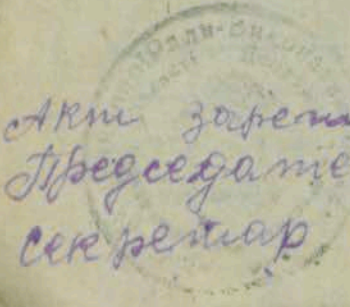 Акт зарег
Председате
секретар